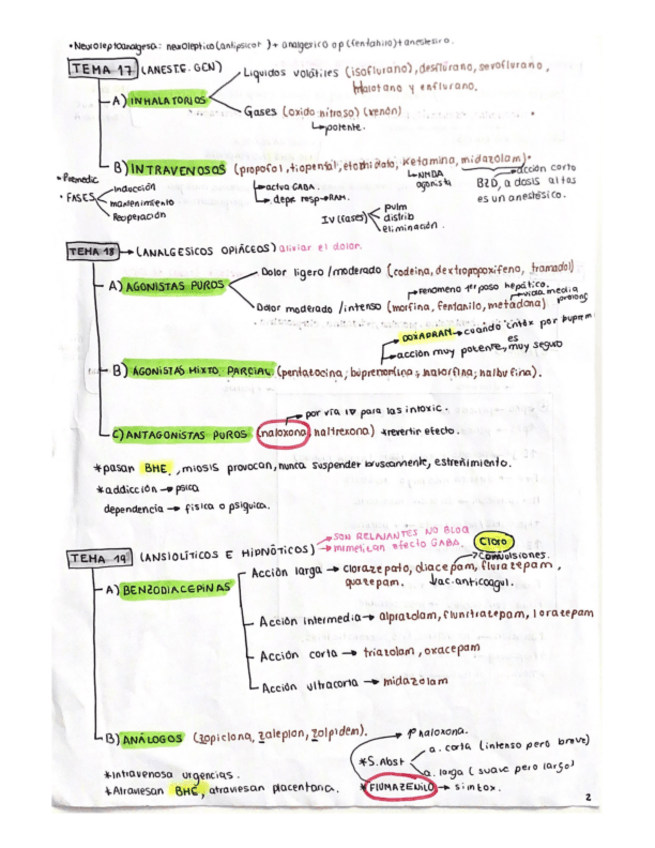 • Neuroleptoanalgesa: neuroléptico (antipsicót) + analgésico op (fentanilo) + anestésico.
TEMA 17 (ANESTE. GEN)
Liquidos volátiles (isoflurano), desflurano, sevoflurano,
halotano y enflurano.
A) INHALATORIOS
Gases (oxido nitroso) (xenón)
↳potente.
B) INTRAVENOSOS (propofol, tiopental, etomidato, ketamina, midazolam)•
• Premedic
• FASES
inducción
mantenimiento
Recuperación
↳activa GABA.
↳depr resp→RAM.
↳NMDA
agonista
acción corta
BZD, a dosis altas
es un anestésico.
IV (fases)
pulm
distrib
eliminación.
TEMA 18 → (ANALGESICOS OPIÁCEOS) aliviar el dolor.
Dolor ligero/moderado (codeína, dextropropoxifeno, tramadol)
A) AGONISTAS PUROS
fenómeno 1er paso hepático.
vida media
prolong
Dolor moderado/intenso (morfina, fentanilo, metadona)
DOXAPRAM → cuando intox por buprem
es
→ acción muy potente, muy seguro
B) AGONISTAS MIXTO. PARCIAL (pentazocina; buprenorfina; nalorfina; nalbufina).
por vía IV para las intoxic.
C) ANTAGONISTAS PUROS (naloxona, naltrexona) *revertir efecto.
*pasan BHE, miosis provocan, nunca suspender bruscamente, estreñimiento.
*addicción → psica
dependencia → física o psíquica.
TEMA 19 (ANSIOLÍTICOS E HIPNÓTICOS)
→ SON RELAJANTES NO BLOQ
→ mimetizan efecto GABA.
Cloro
→Convulsiones.
A) BENZODIACEPINAS
Acción larga → clorazepato, diacepam, flurazepam,
quazepam. ↓ac. anticoagul.
Acción intermedia → alprazolam, flunitrazepam, lorazepam
Acción corta → triazolam, oxacepam
Acción ultracorta → midazolam
B) ANÁLOGOS (zopiclona, zaleplon, zolpidem).
naloxona.
*S. Abst
a. corta (intenso pero breve)
a. larga (suave pero largo)
*Intravenosa urgencias.
*Atraviesan BHE, atraviesan placentaria.
*FLUMAZENILO →
2